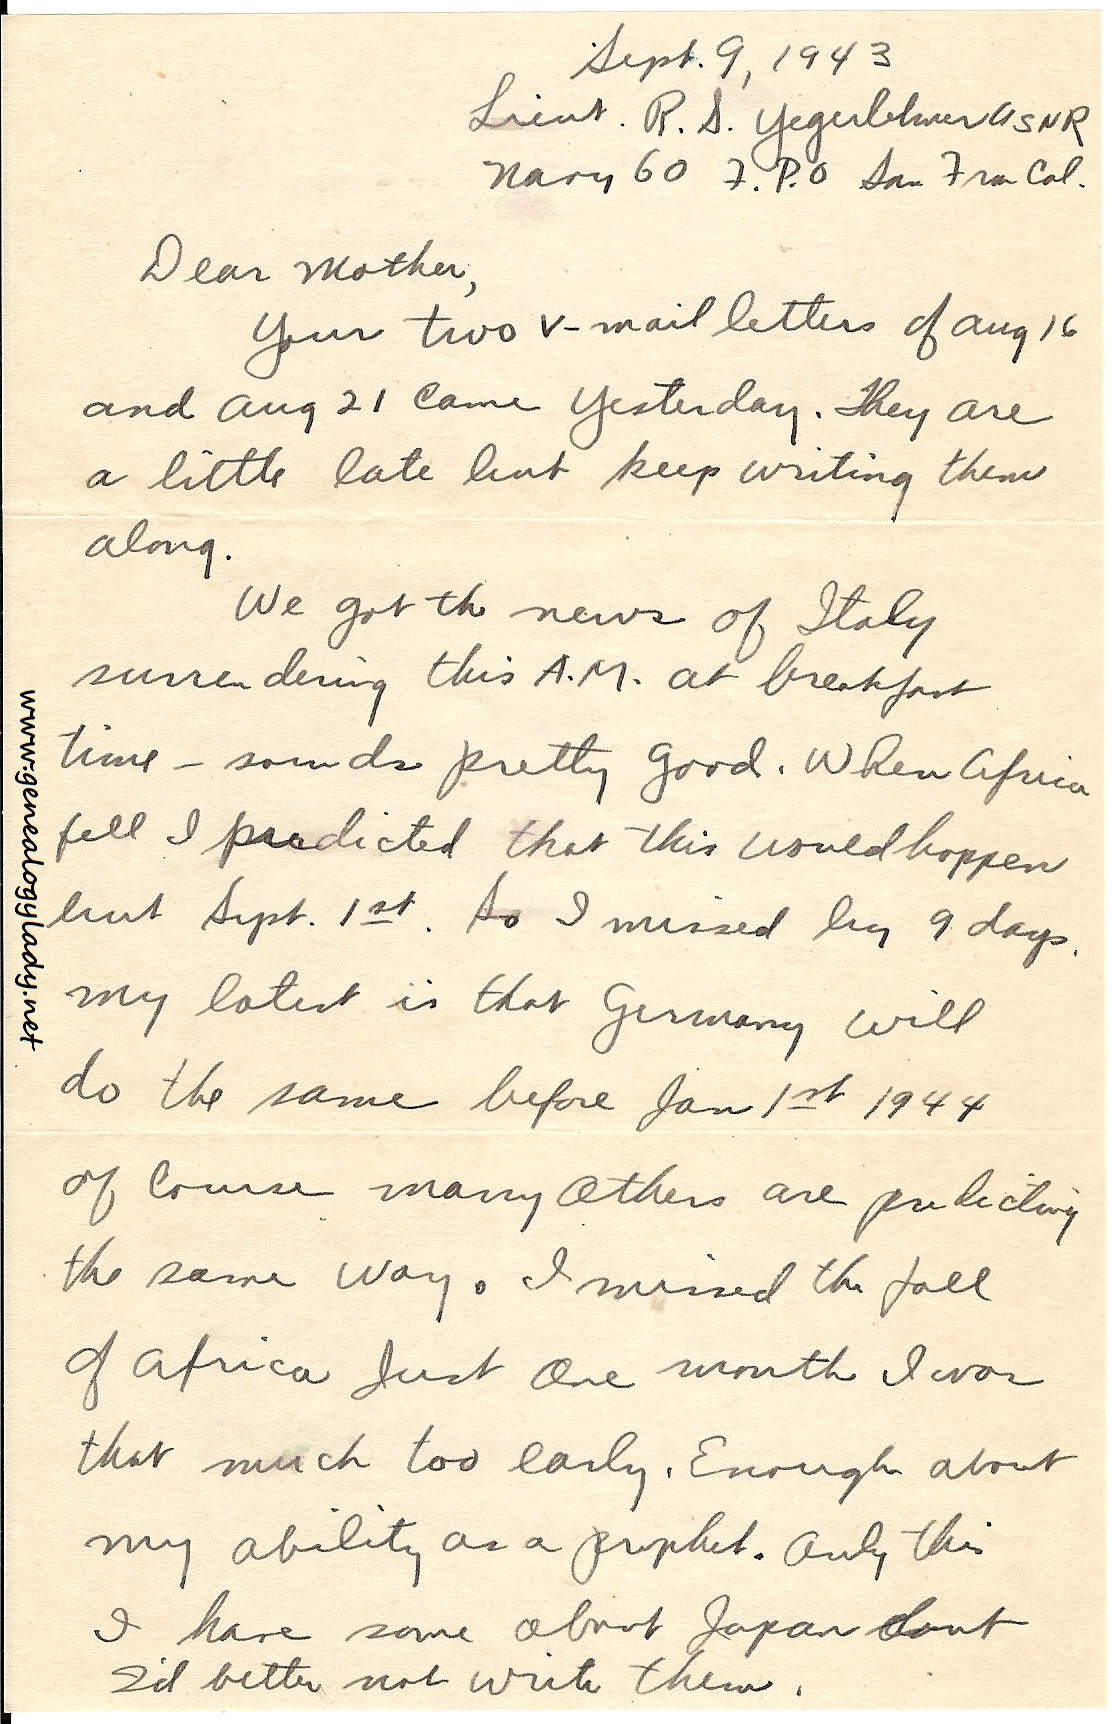 Sept. 9, 1943
Lieut. R. S. Yegerlehner USNR
Navy 60 F.P.O San Fran Cal.
Dear Mother,
Your two V-mail letters of Aug 16
and Aug 21 came yesterday. They are
a little late but keep writing them
along.
We got the news of Italy
surrendering this A.M. at breakfast
time - sounds pretty good. When Africa
fell I predicted that this would happen
but Sept. 1st. So I missed by 9 days.
My latest is that Germany will
do the same before Jan 1st 1944
of course many others are predicting
the same way. I missed the fall
of Africa just one month I was
that much too early. Enough about
my ability as a prophet. Only this
I have some about Japan but
I'd better not write them.
www.genealogylady.net